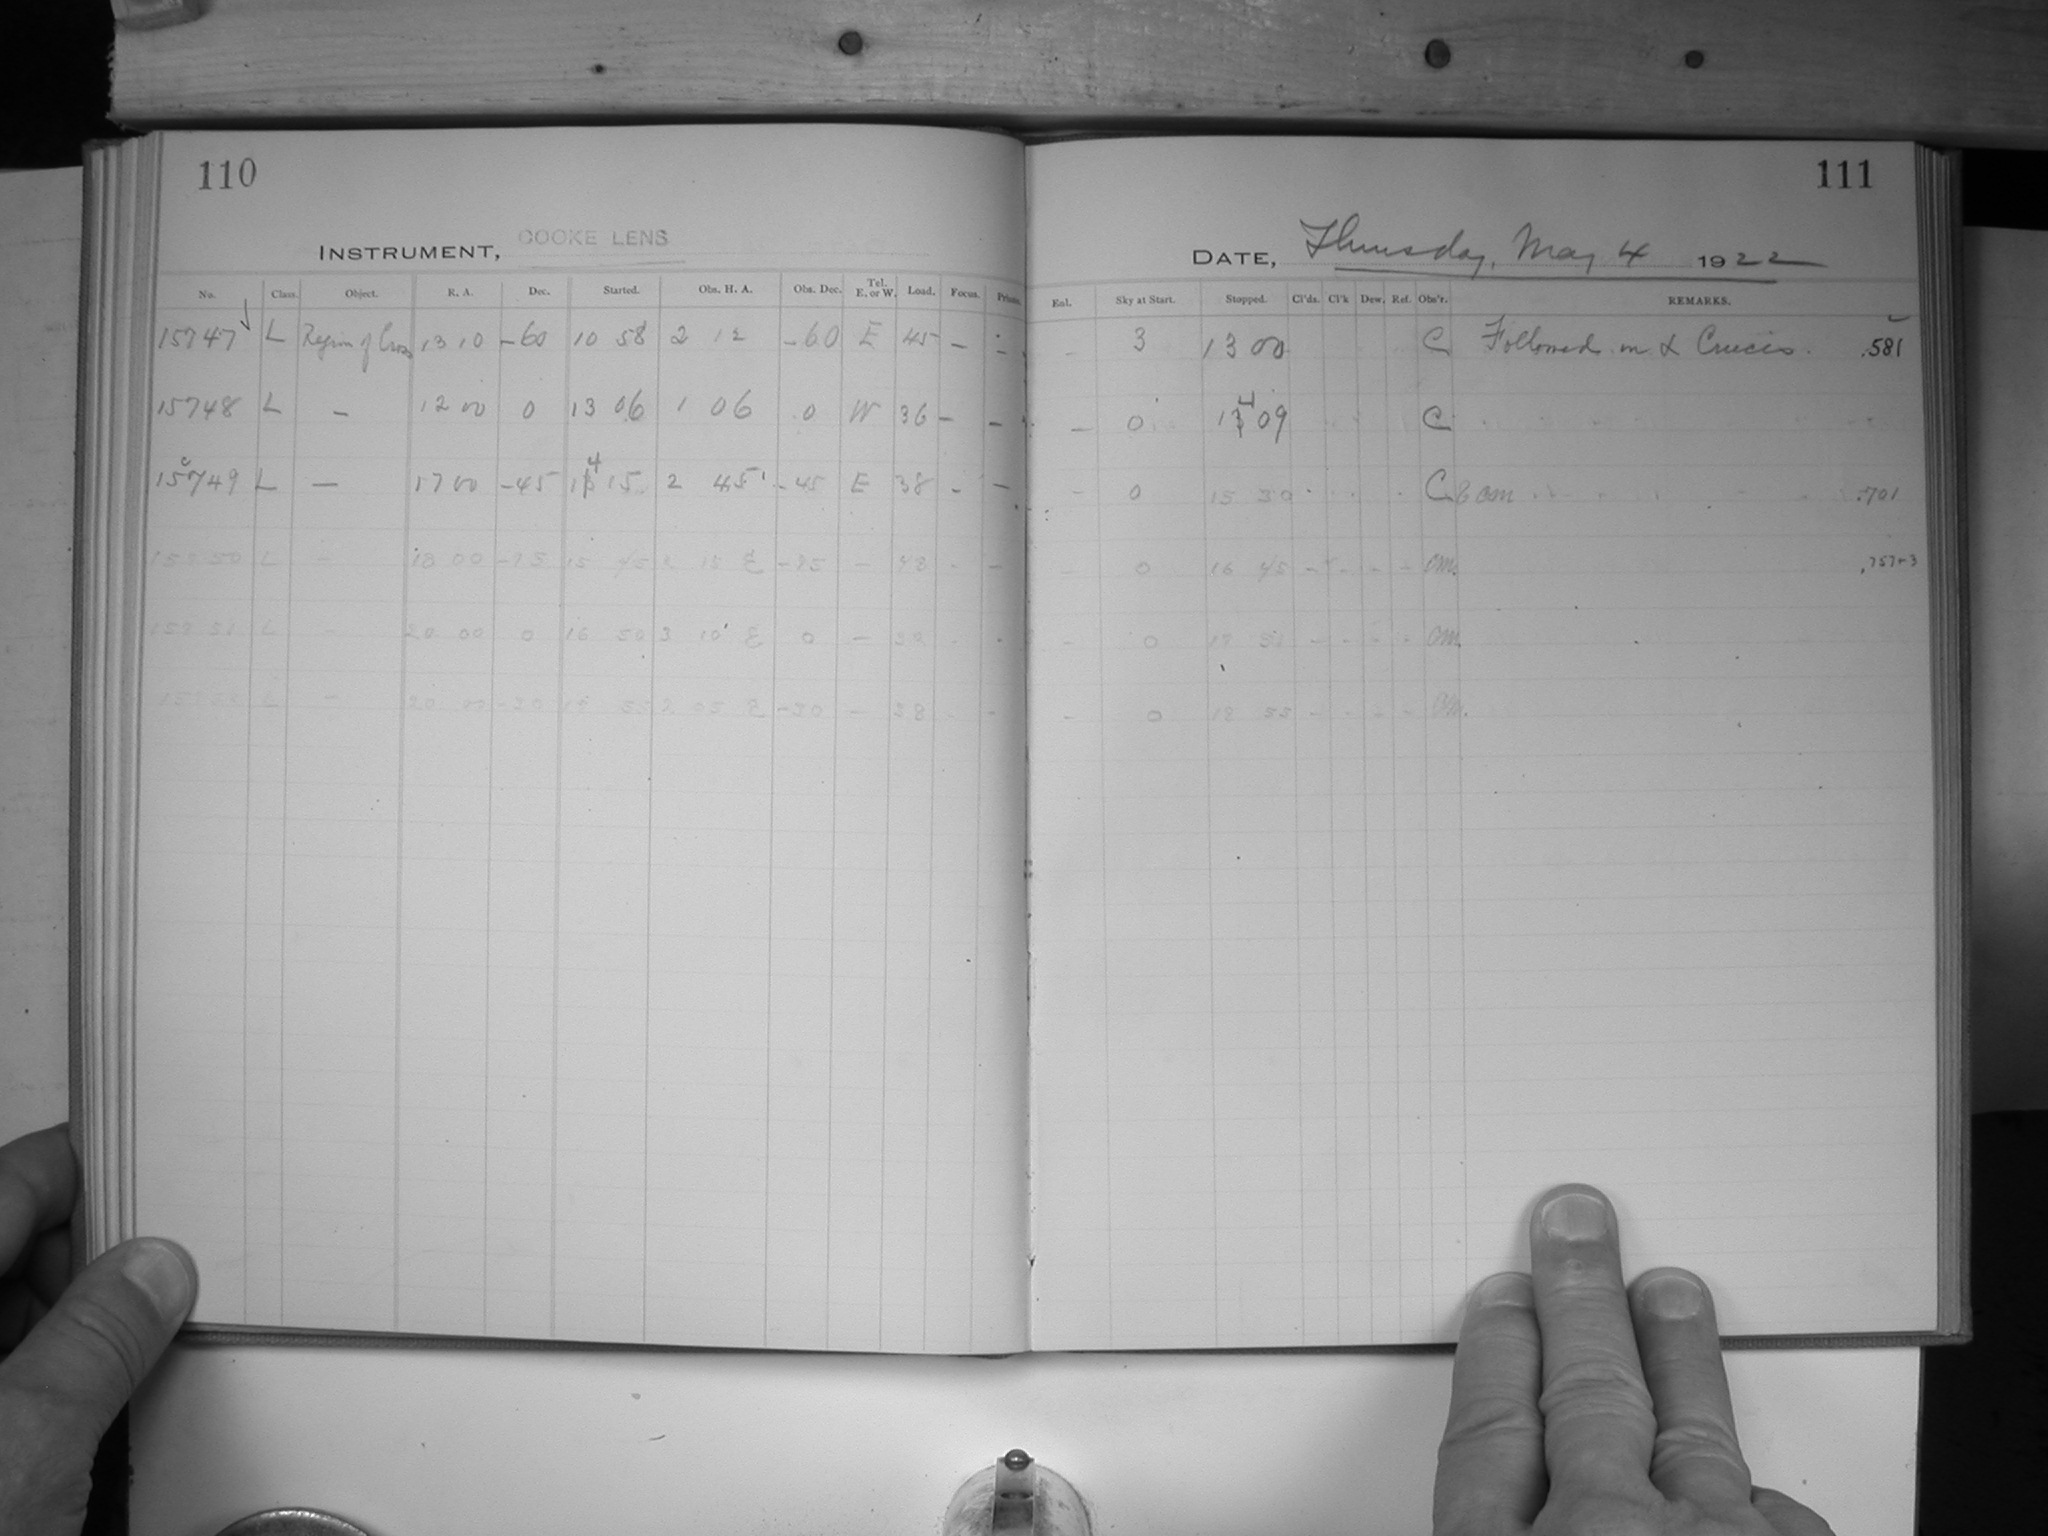 110
111
INSTRUMENT, COOKE LENS
DATE, Thursday, May 4 1922
No. Class. Object. R. A. Dec. Started. Obs. H. A. Obs. Dec. Tel. E. or W. Load. Focus. Prisms. Enl. Sky at Start. Stopped. Cl'ds. Cl'k Dew. Ref. Obs'r. REMARKS.
15747 L Region of Cross 13 10 -60 10 58 2 12 -60 E 45 - - - 3 13 00 C Followed on α Crucis. .581
15748 L - 12 00 0 13 06 1 06 0 W 36 - - - 0 14 09 C
15749 L - 17 00 -45 14 15 2 45 -45 E 38 - - - 0 15 30 C & om .701
L - 18 00 15 45 2 15 E - 48 - - - 0 16 45 - - - - om.
L - 20 00 0 16 50 3 10 E 0 - - - - 0 - - - - om.
L - 20 00 -30 2 05 E -30 - 38 - - - 0 18 55 - - - - om.